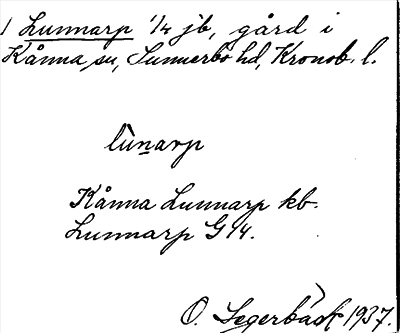 1 Lunnarp 1/4 jb, gård i
Kånna sn, Sunnerbo hd, Kronob. l.
lùnarp
Kånna Lunnarp kb.
Lunnarp G 14.
O. Segerbäck 1937.